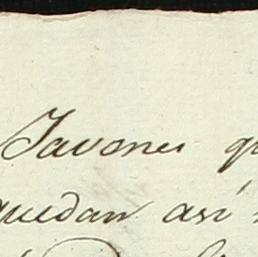 Javones q
quedan así